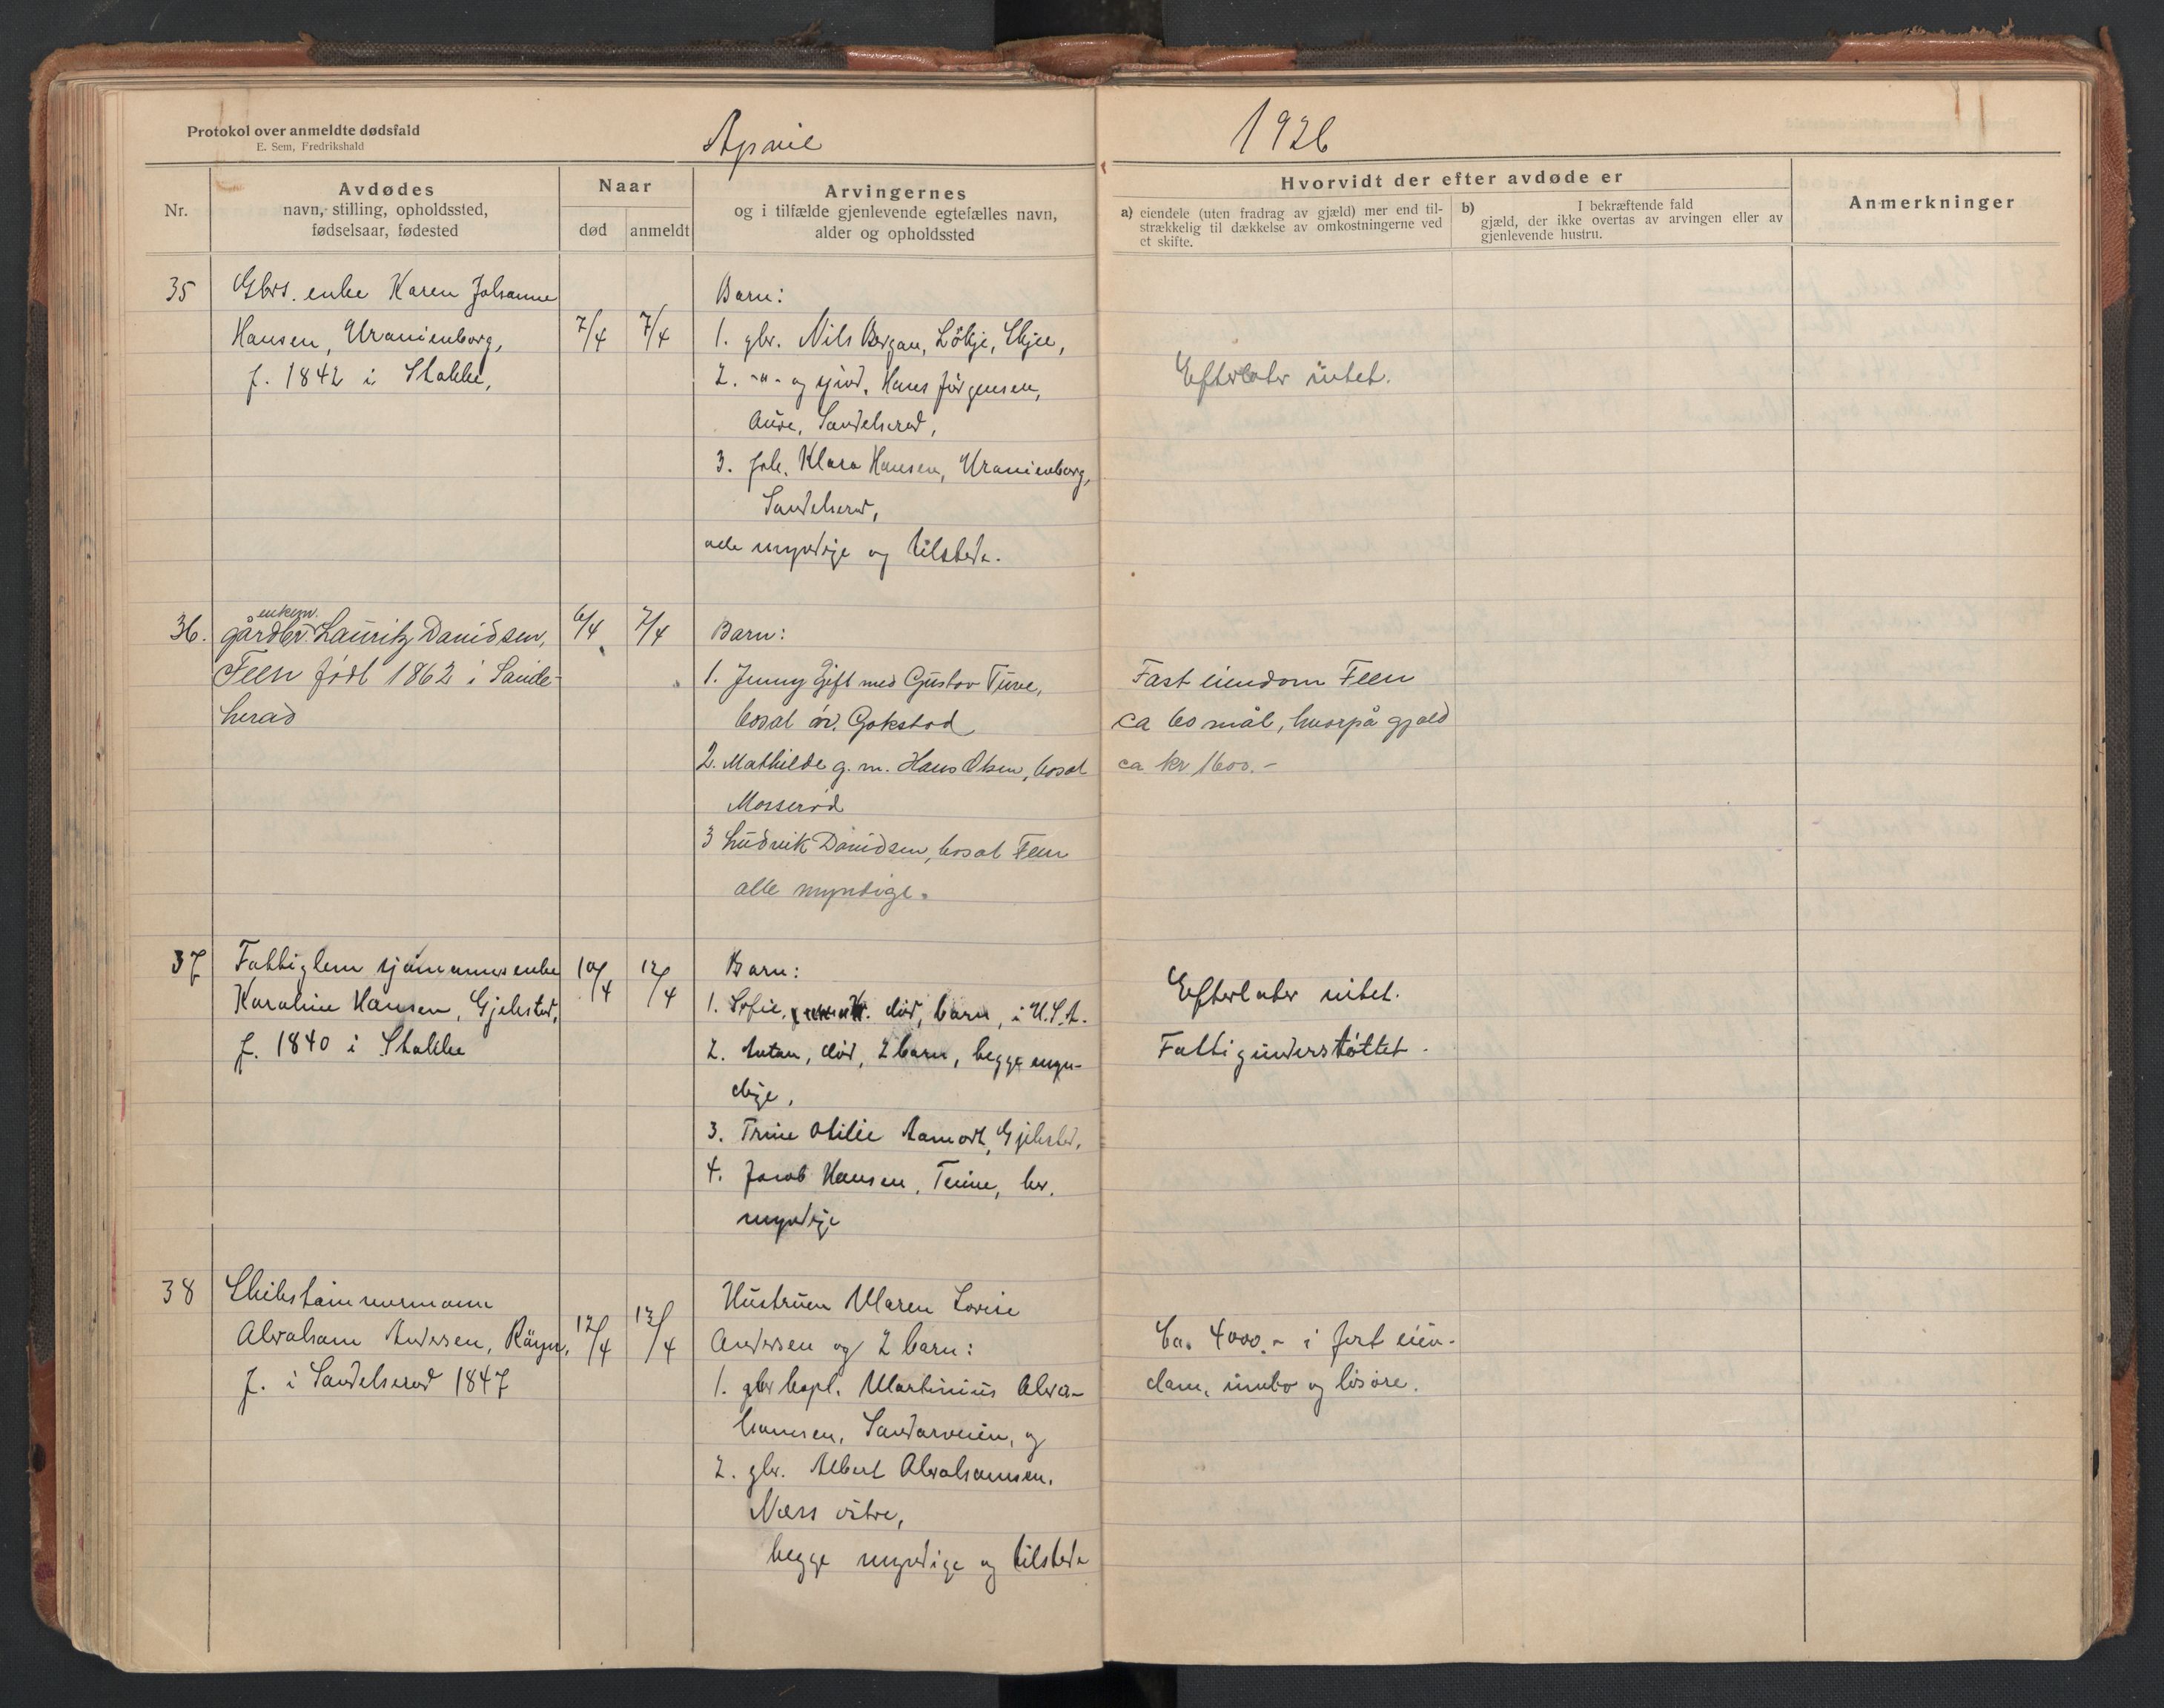 Protokol over anmeldte dødsfald
E. Sem, Fredrikshald
April
1926
Nr.
Avdødes
navn, stilling, opholdssted,
fødselsaar, fødested
Naar
død
anmeldt
Arvingernes
og i tilfælde gjenlevende egtefælles navn,
alder og opholdssted
Hvorvidt der efter avdøde er
a) eiendele (uten fradrag av gjæld) mer end til-
strækkelig til dækkelse av omkostningerne ved
et skifte.
b) I bekræftende fald
gjæld, der ikke overtas av arvingen eller av
gjenlevende hustru.
Anmerkninger
35
Gbrs. enke Karen Johanne
Hansen, Uranienborg,
f. 1842 i Stokke,
7/4
7/4
Barn:
1. gbr. Nils Bergan, Lökje, Skjee,
2. -"- og Hans Jörgensen,
Auve, Sandeherad,
3. frk. Klara Hansen, Uranienborg,
Sandeherad,
alle myndige og tilstede.
Efterlater intet.
36.
enkem.
gårdbr. Lauritz Davidsen,
Feen født 1862 i Sande-
herad
6/4
7/4
Barn:
1. Jenny gift med Gustav Tuve,
bosat öv. Gokstad
2. Mathilde g. m. Hans Olsen, bosat
Mosserød
3 Ludvik Davidsen, bosat Feen
alle myndige.
Fast eiendom Feen
ca 60 mål, hvorpå gjæld
ca kr 1600.-
37
Fattiglem sjömannsenke
Karoline Hansen, Gjekstad,
f. 1840 i Stokke
10/4
12/4
Barn:
1. Sofie, död, barn, i U.S.A.
2. Anton, död, 2 barn, begge myn-
dige,
3. Trine Otilie Aamodt, Gjekstad,
4. Jacob Hansen,
myndige
Efterlater intet.
Fattigunderstöttet.
38
Skibstömmermann
Abraham Andersen,
f. i Sandeherad 1847
12/4
13/4
Hustruen Maren Lovise
Andersen og 2 barn:
1. gbr kapt. Martinius Abra-
hamsen, Sandarveien, og
2. gbr. Albert Abrahamsen,
Næss östre,
begge myndige og tilstede
Ca. 4000.- i fast eien-
dom, innbo og lösöre.